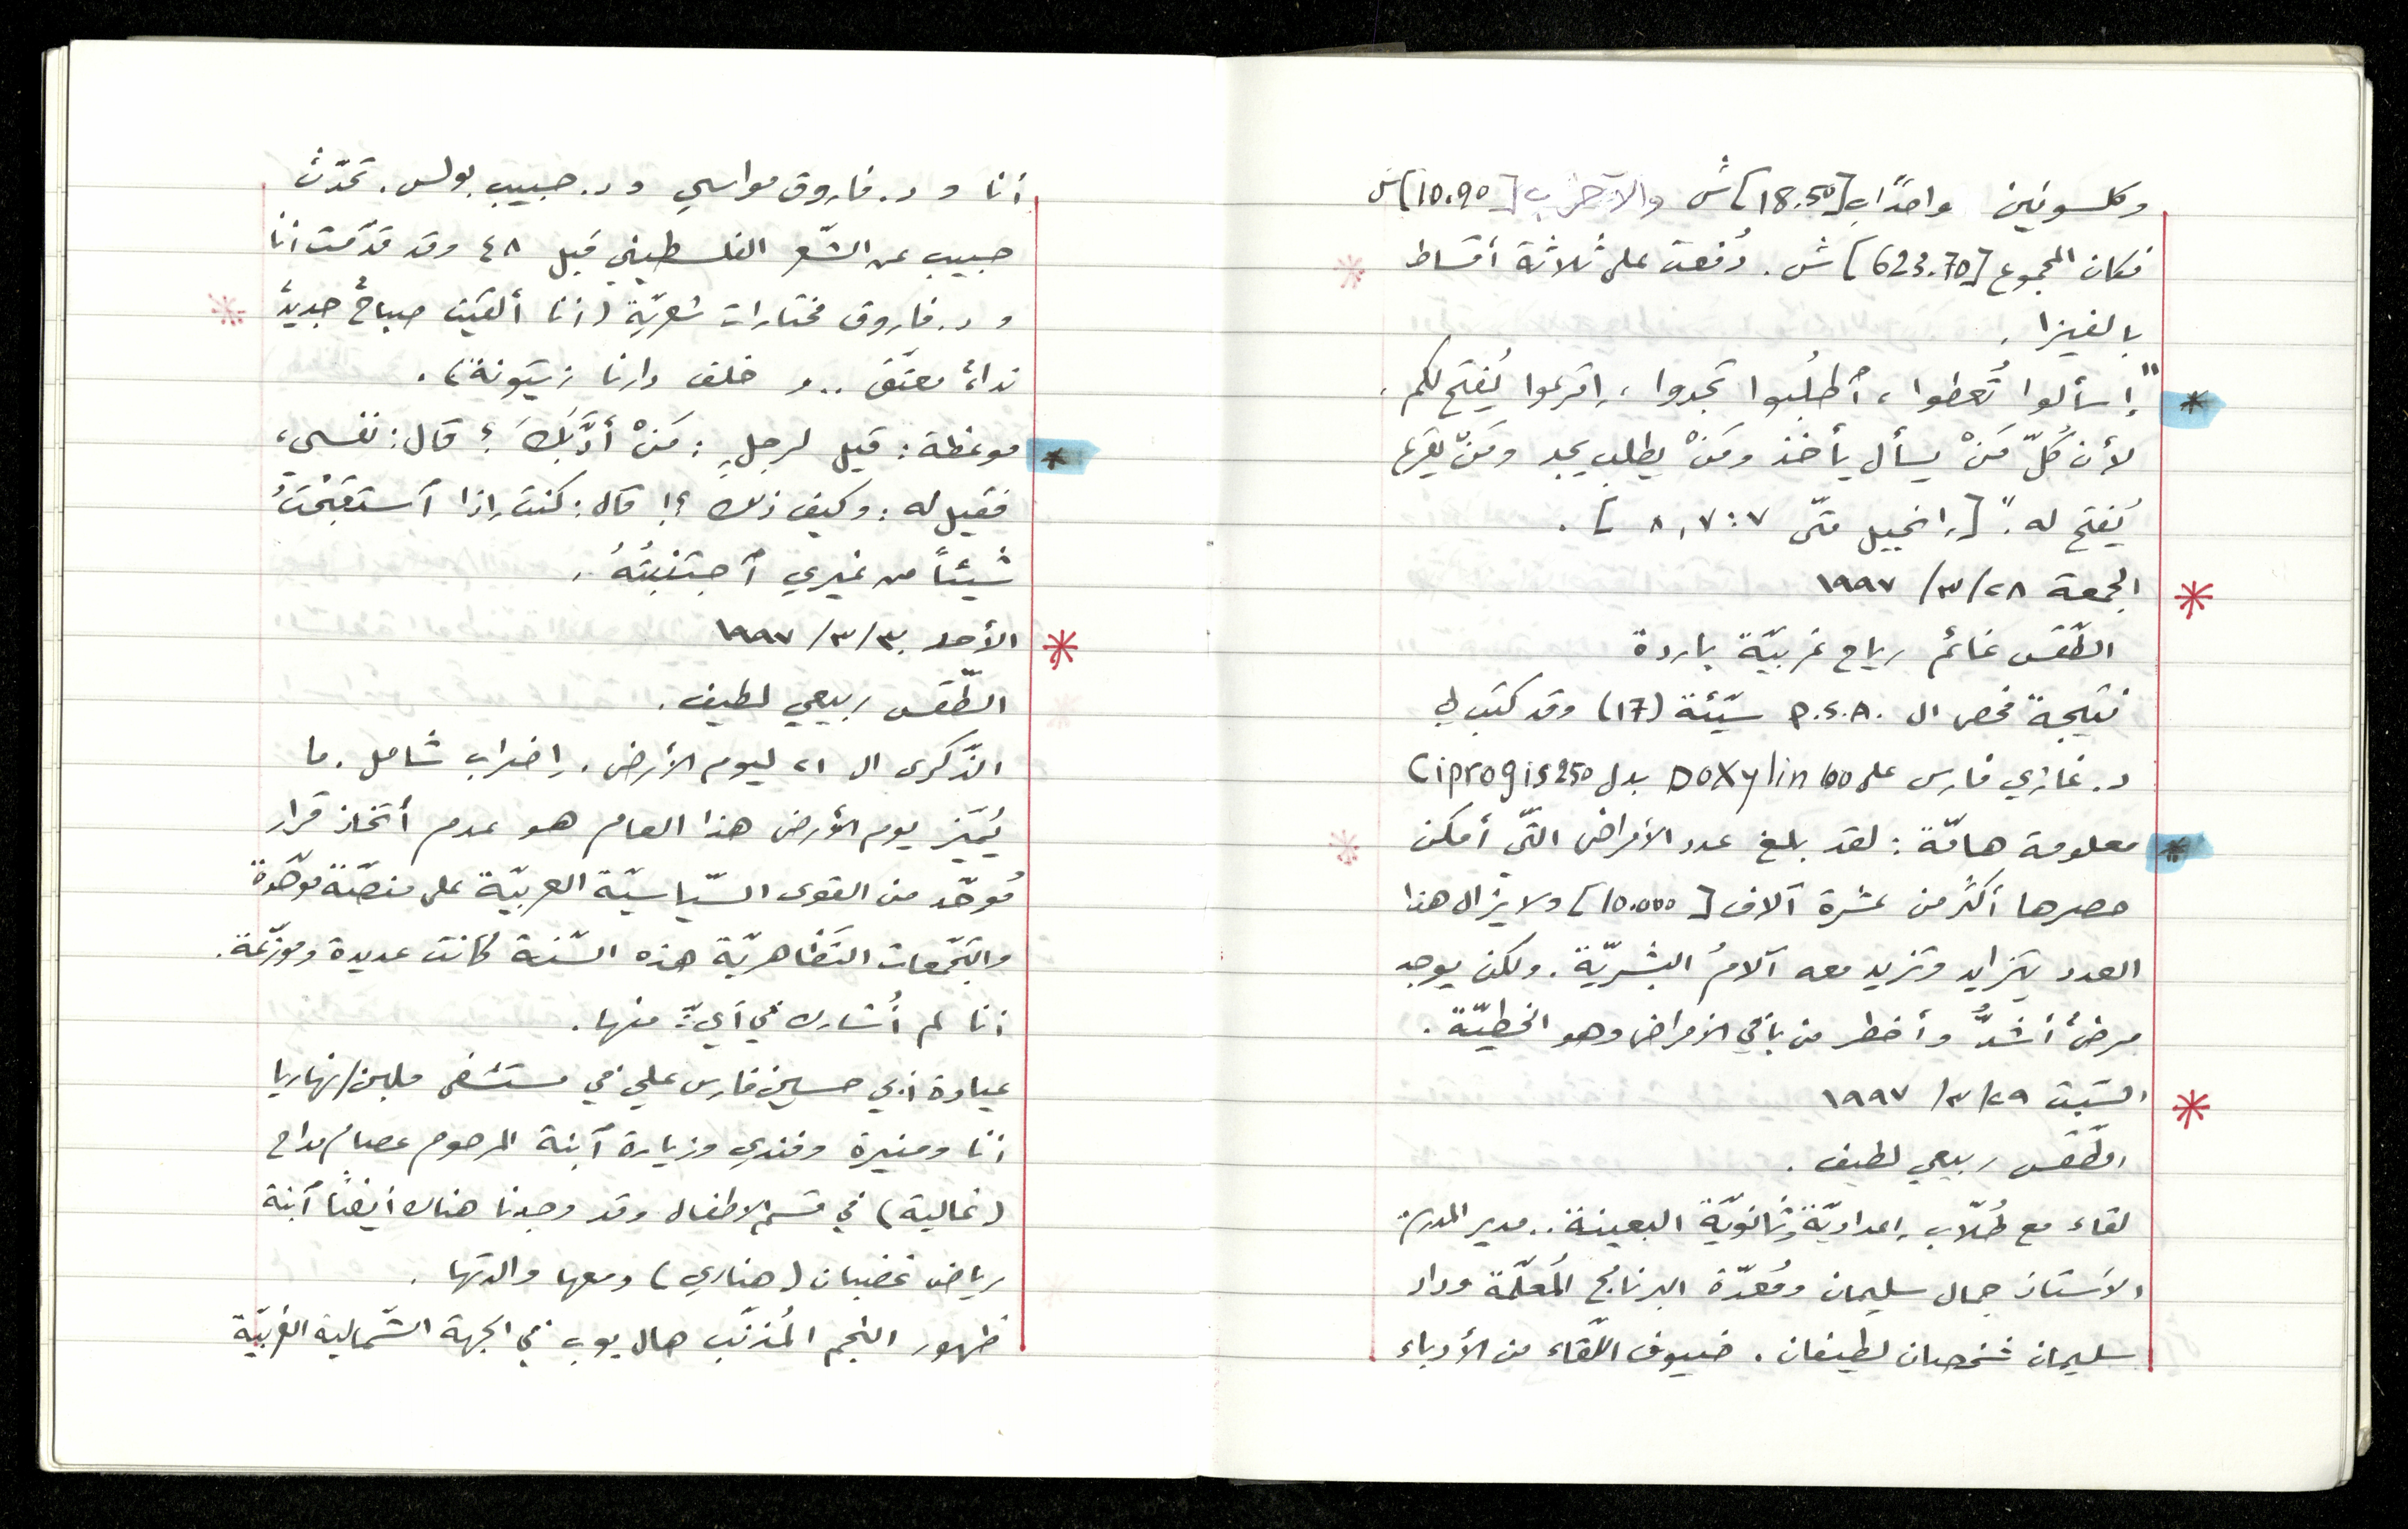 وكلسونين واحدًا ب[18.50]ش والآخر ب[10.90]ش
فكان المجموع [623.70] ش. دُفعت على ثلاثة أقساط
بالفيزا.
* "إسألوا تُعطوا، أُطلُبوا تجدوا، إقرعوا يُفتح لكم.
لأن كُلّ مَنْ يسأل يأخذ ومَنْ يطلب يجد ومَنْ يقرع
يُفتح له." [إنجيل متّى ٧:٧،٨].
* الجمعة ٢٨/٣/١٩٩٧
الطّقس غائم رياح غربيّة باردة
نتيجة فحص ال P.S.A. سيّئة (17) وقد كتب لي
د. غازي فارس على Doxylin 100 بدل Ciprogis 250
* معلومة هامّة: لقد بلغ عدد الأمراض التّي أمكن
حصرها أكثر من عشرة آلاف [10.000] ولا يزال هذا
العدد يتزايد وتزيد معه آلامُ البشريّة. ولكن يوجد
مرضٌ أشدُّ وأخطر من باقي الأمراض وهو الخطيّة.
* السّبت ٢٩/٣/١٩٩٧
الطّقس ربيعي لطيف.
لقاء مع طُلّاب إعداديّة وثانويّة البعينة.. مدير المدرسة
الأستاذ جمال سليمان ومُعدّة البرنامج المُعلّمة وداد
سليمان شخصان لطيفان. ضيوف اللّقاء من الأدباء
أنا و د. فاروق مواسي و د. حبيب بولس. تحدّث
حبيب عن الشّعر الفلسطيني قبل ٤٨ وقد قدّمت أنا
و د. فاروق مختارات شعريّة (أنا ألقيت صباحٌ جديدٌ
نداءٌ معتّق .. و خلف دارنا زيتونة).
* موعظة: قيل لرجلٍ: مَنْ أدَّبَكَ؟ قال: نفسي،
فقيل له: وكيف ذلك ؟! قال: كنت إذا آستقبَحْتُ
شيئًا من غيري آجتنبتُهُ.
* الأحد ٣٠/٣/١٩٩٧
الطّقس ربيعي لطيف.
الذّكرى ال ٢١ ليوم الأرض. إضراب شامل. ما
يُميّز يوم الأرض هذا العام هو عدم أتخاذ قرار
مُوحّد من القوى السّياسيّة العربيّة على منصّة موحّدة
والتّجمّعات التّظاهريّة هذه السّنة كانت عديدة وموزّعة.
أنا لم أُشارك في أيّ منها.
عيادة أبي حسين فارس علي في مستشفى         /نهاريا
أنا ومنيرة وفندي وزيارة آبنة المرحوم عصام مداح
(غالية) في قسم الاطفال وقد وجدنا هناك أيضًا آبنة
رياض غضبان (هناري) ومعها والدتها.
ظهور النجم المُذنّب هال بوب في الجهة الشّمالية الغربيّة